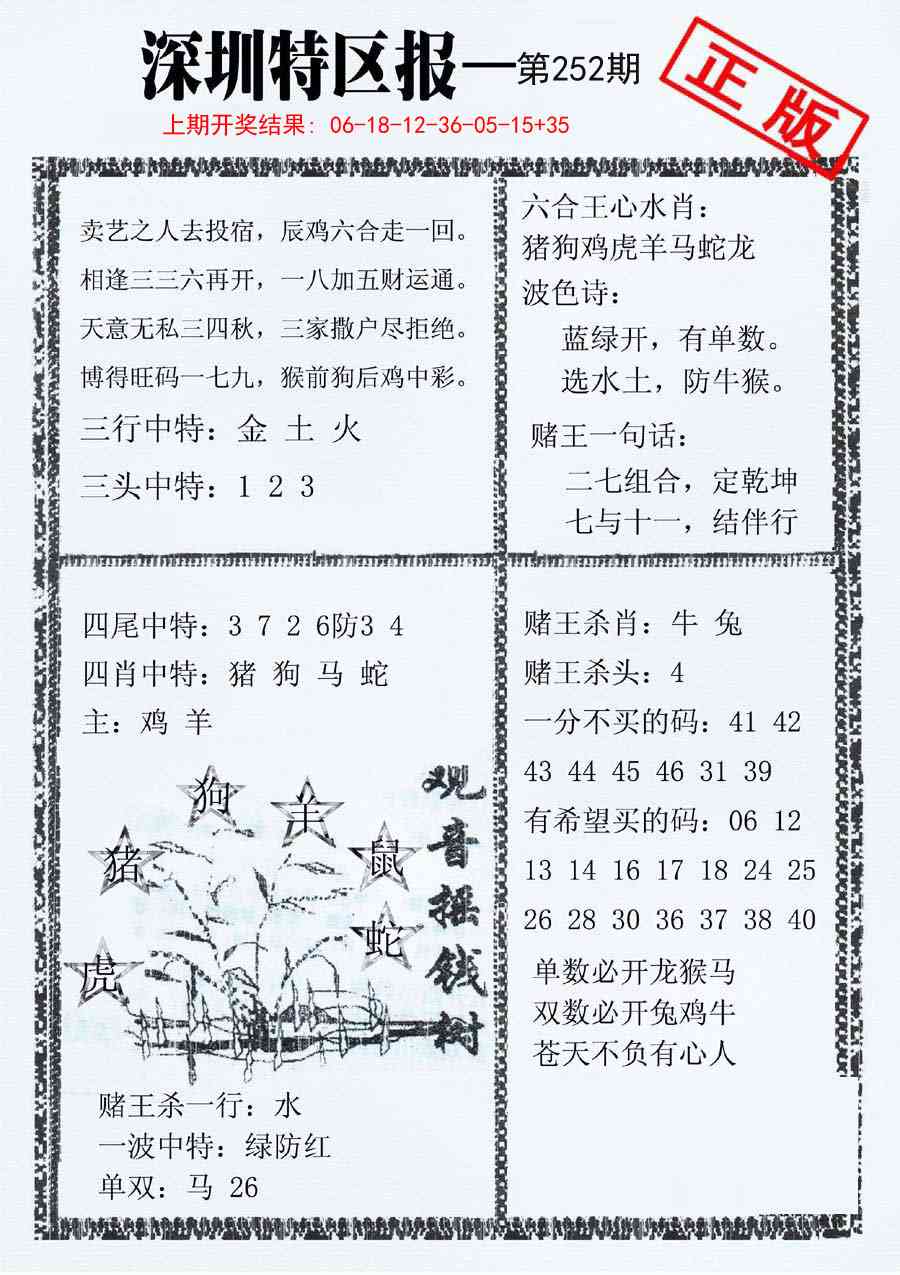 深圳特区报—第252期
正版
上期开奖结果: 06-18-12-36-05-15+35
卖艺之人去投宿，辰鸡六合走一回。
相逢三三六再开，一八加五财运通。
天意无私三四秋，三家撒户尽拒绝。
博得旺码一七九，猴前狗后鸡中彩。
三行中特：金 土 火
三头中特：1 2 3
六合王心水肖：
猪狗鸡虎羊马蛇龙
波色诗：
蓝绿开，有单数。
选水土，防牛猴。
赌王一句话：
二七组合，定乾坤
七与十一，结伴行
四尾中特：3 7 2 6防3 4
四肖中特：猪 狗 马 蛇
主：鸡 羊
狗
羊
猪
鼠
蛇
虎
观音摇钱树
赌王杀一行：水
一波中特：绿防红
单双：马 26
赌王杀肖：牛 兔
赌王杀头：4
一分不买的码：41 42
43 44 45 46 31 39
有希望买的码：06 12
13 14 16 17 18 24 25
26 28 30 36 37 38 40
单数必开龙猴马
双数必开兔鸡牛
苍天不负有心人